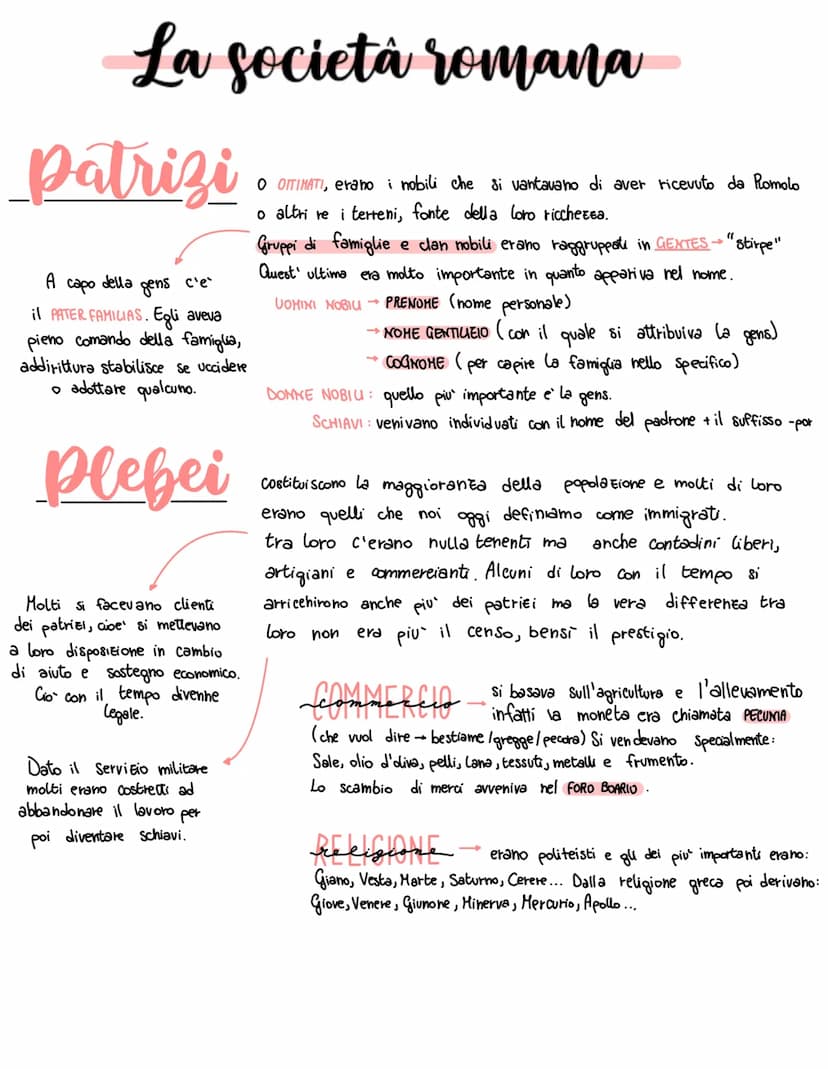 La società romana
Patrizi
O OTTIMATI, erano i nobili che si vantavano di aver ricevuto da Romolo
o altri re i terreni, fonte della loro ricchezza.
Gruppi di famiglie e clan nobili erano raggruppati in GENTES → "stirpe"
Quest' ultima era molto importante in quanto appariva nel nome.
UOMINI NOBILI → PRENOME (nome personale)
→ NOME GENTILIZIO (con il quale si attribuiva la gens)
→ COGNOME (per capire la famiglia nello specifico)
DONNE NOBILI: quello piu' importante e' la gens.
SCHIAVI: venivano individuati con il nome del padrone + il suffisso -por
A capo della gens c'e'
il PATER FAMILIAS. Egli aveva
pieno comando della famiglia,
addirittura stabilisce se uccidere
o adottare qualcuno.
Plebei
Costituiscono la maggioranza della popolazione e molti di loro
erano quelli che noi oggi definiamo come immigrati.
tra loro c'erano nulla tenenti ma anche contadini liberi,
artigiani e commercianti. Alcuni di loro con il tempo si
arricchirono anche piu' dei patrizi ma la vera differenza tra
loro non era piu' il censo, bensì il prestigio.
Molti si facevano clienti
dei patrizi, cioe' si mettevano
a loro disposizione in cambio
di aiuto e sostegno economico.
Cio' con il tempo divenne
legale.
Dato il servizio militare
molti erano costretti ad
abbandonare il lavoro per
poi diventare schiavi.
COMMERCIO commercio → si basava sull'agricoltura e l'allevamento
infatti la moneta era chiamata PECUNIA
(che vuol dire → bestiame/gregge/pecora) Si vendevano specialmente:
Sale, olio d'oliva, pelli, lana, tessuti, metalli e frumento.
Lo scambio di merci avveniva nel FORO BOARIO.
RELIGIONE religione → erano politeisti e gli dei piu' importanti erano:
Giano, Vesta, Marte, Saturno, Cerere... Dalla religione greca poi derivano:
Giove, Venere, Giunone, Minerva, Mercurio, Apollo...